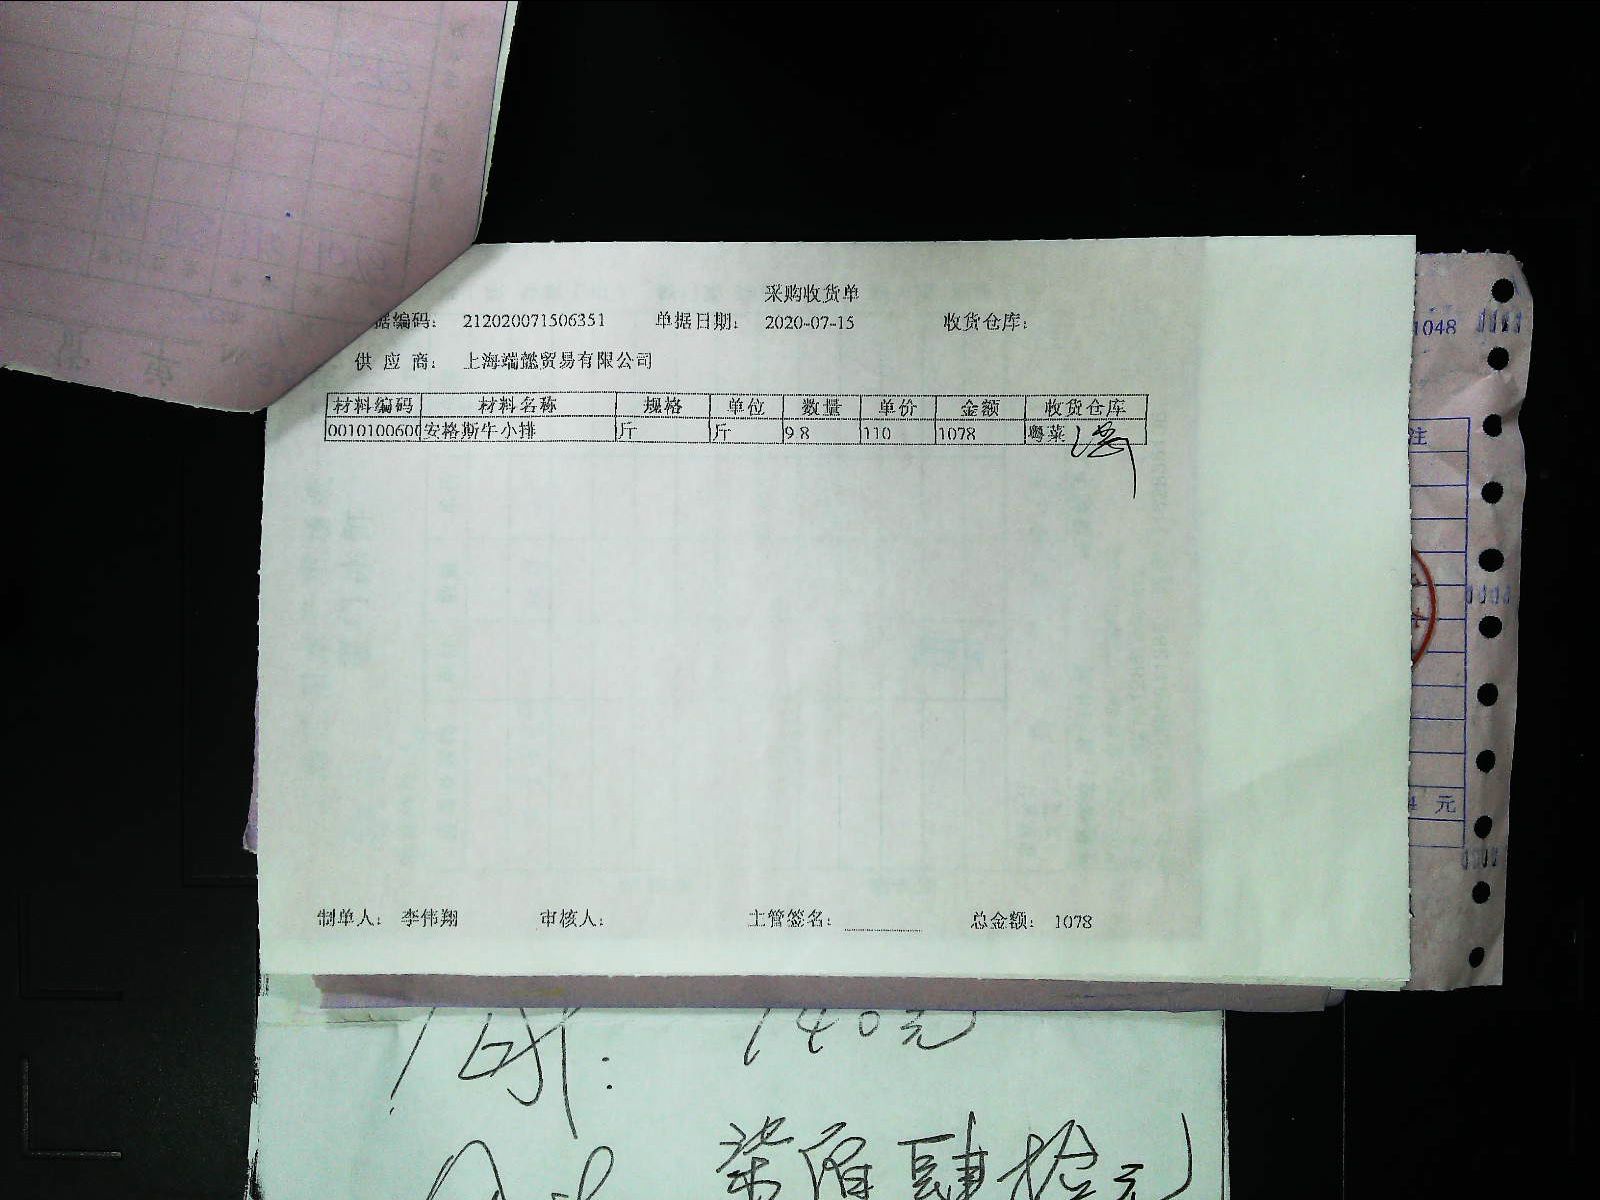 采购收货单
据编码: 212020071506351 单据日期: 2020-07-15 收货仓库:
供应商: 上海端懿贸易有限公司
材料编码 材料名称 规格 单位 数量 单价 金额 收货仓库
0010100600 安格斯牛小排 斤 斤 9.8 110 1078 粤菜
制单人: 李伟翔 审核人: 主管签名: 总金额: 1078
1048
注
4 元
140元
柒佰肆拾元